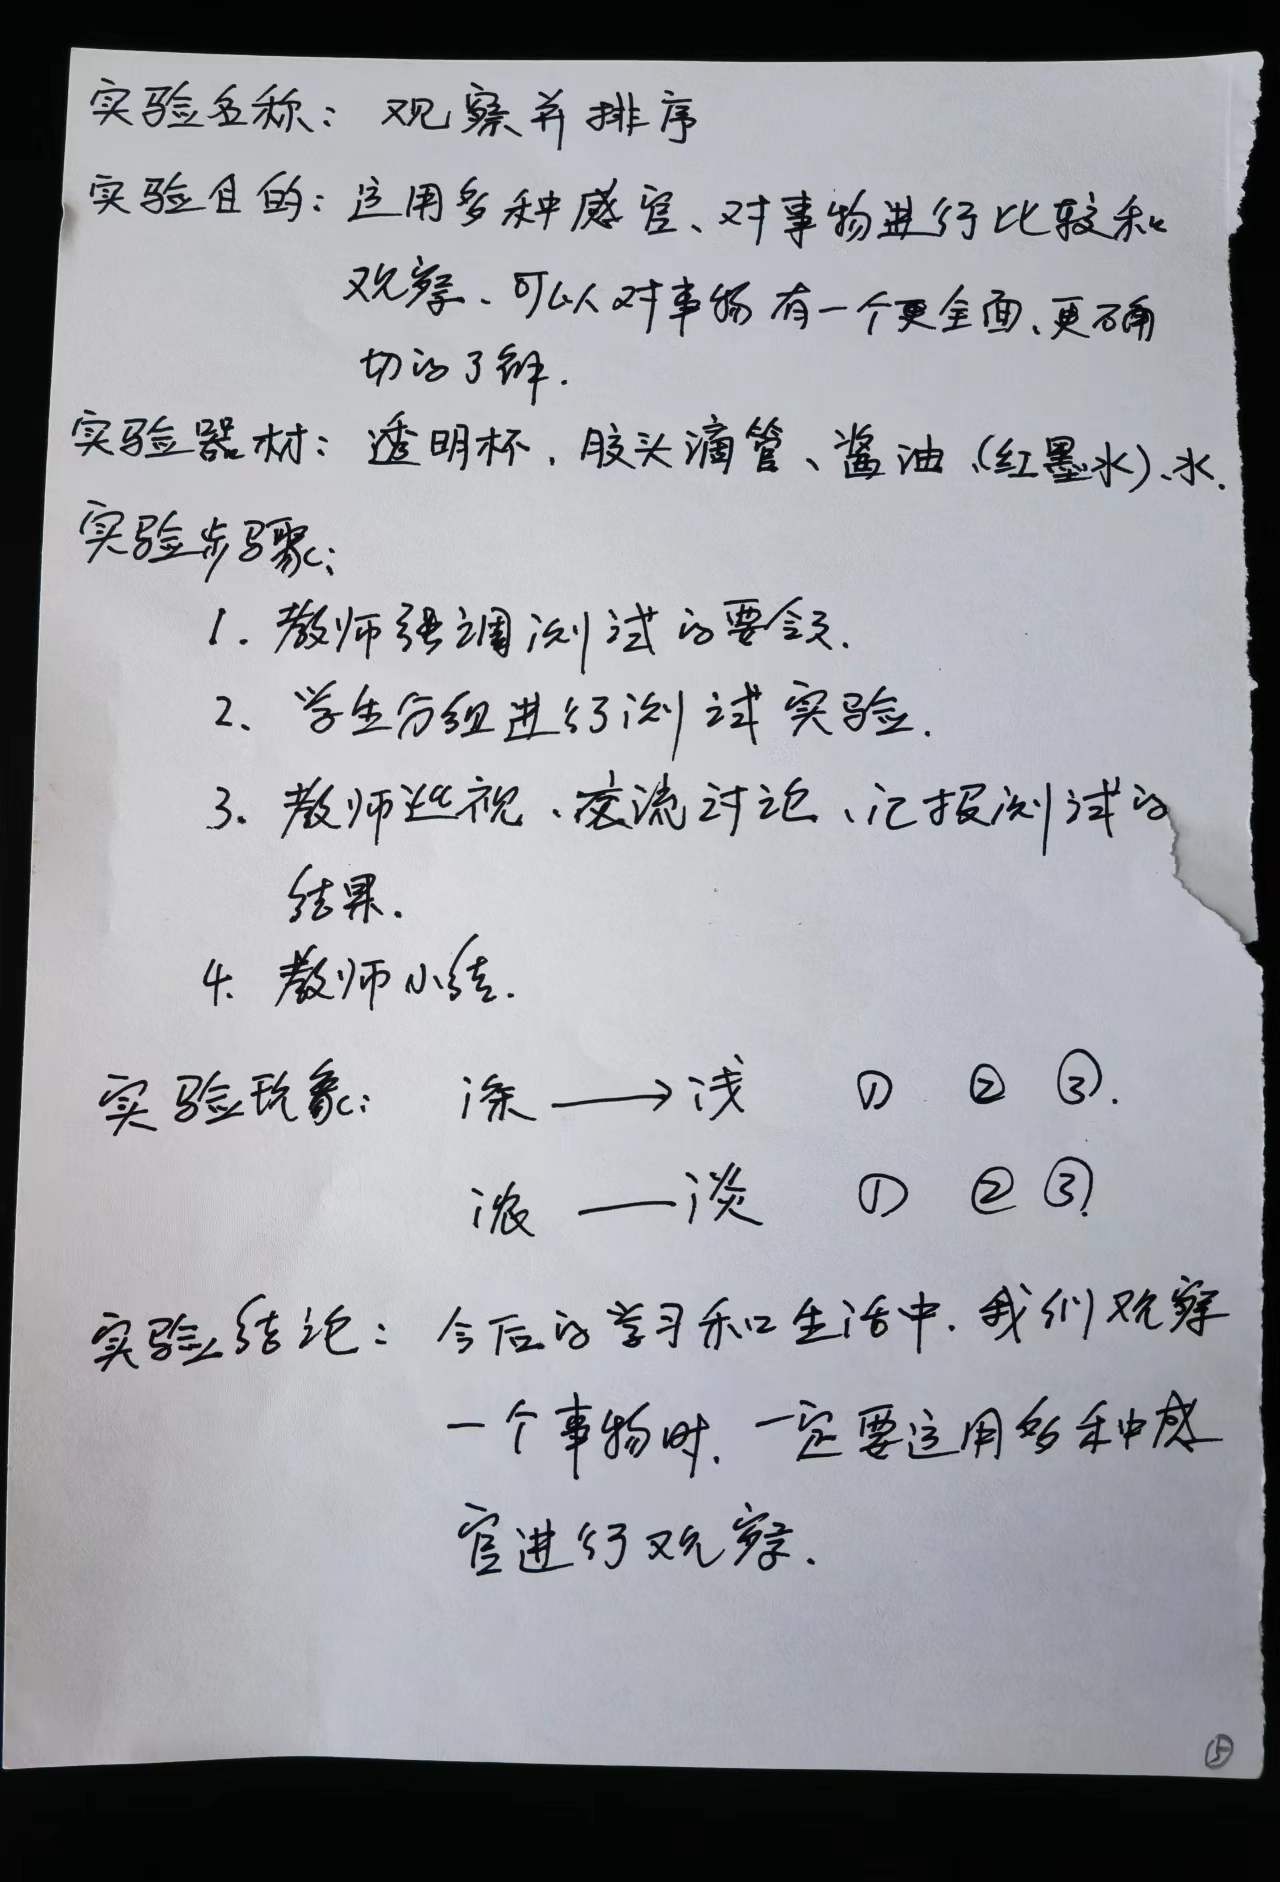 实验名称：观察并排序
实验目的：运用多种感官、对事物进行比较和
观察、可以对事物有一个更全面、更确
切的了解.
实验器材：透明杯、胶头滴管、酱油、(红墨水)、水.
实验步骤：
1. 教师强调测试的要领.
2、学生分组进行测试实验.
3. 教师巡视、交流讨论、汇报测试的
结果.
4. 教师小结.
实验现象：深→浅 ① ② ③.
浓—淡 ① ② ③.
实验结论：今后的学习和生活中.我们观察
一个事物时.一定要运用多种感
官进行观察.
⑤